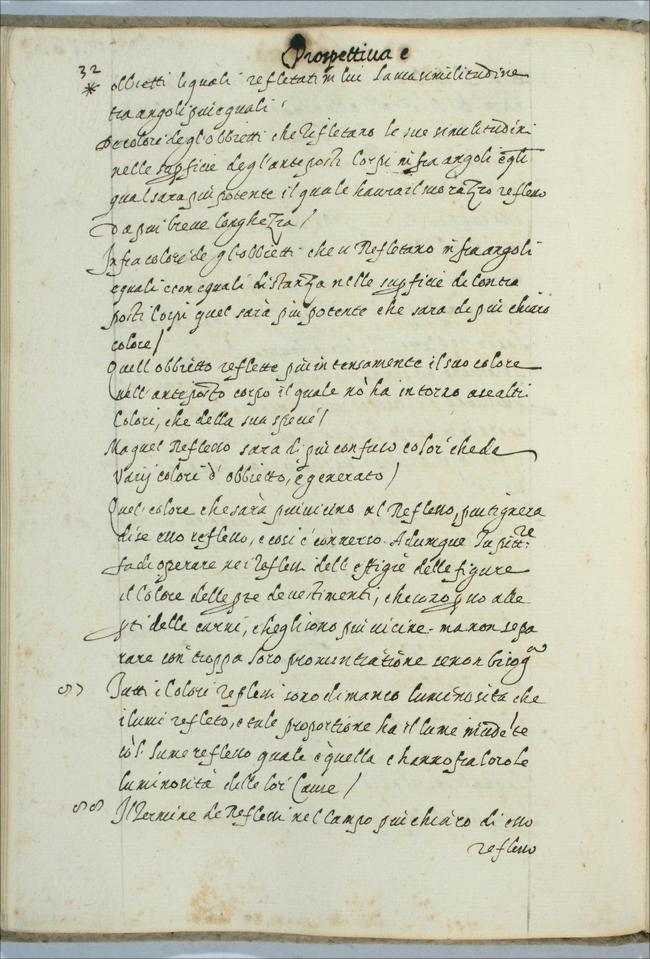 Prospettiua e
32
* obbietti li quali refletati in lui la sua similitudine
tra angoli piu equali
De colori de gl'obbietti che refletano le sue similitudini
nelle supficie de gl'anteposti corpi infra angoli egli
qual sara piu potente il quale haura il suo razzo reflesso
Da piu breue longhezza /
Infra colori de gl obbietti che si Refletano infra angoli
equali e con equali distanza nelle supficie di contra
posti corpi quel sarà piu potente che sara di piu chiaro
colore /
Quell obbietto reflette piu intensamente il suo colore
nell' anteposto corpo il quale nō ha intorno a se altri
Colori, che della sua specie /
Ma quel Reflesso sara di piu confuso color' che da
Varij colori d' obbietto, è generato /
Quel colore che sarà piu uicino al Reflesso, piu tignera
di se esso reflesso, e cosi è conuerso. Adunque Tu pittre
fa di operare ne i reflessi dell effigie delle figure
il Colore delle pte de uestimenti, che sono pso alle
pti delle carni, che gli sono piu uicine. ma non sepa
rare con troppa loro pronuntiatione se non bisogā
87 Tutti i Colori reflessi sono di manco luminosita che
il lumi refleto, e tale proportione ha il lume incidēte
cōl lume reflesso quale è quella c hanno fra loro le
luminosità delle lor' Cause /
88 Il Termine de Reflessi nel campo piu chiaro di esso
reflesso